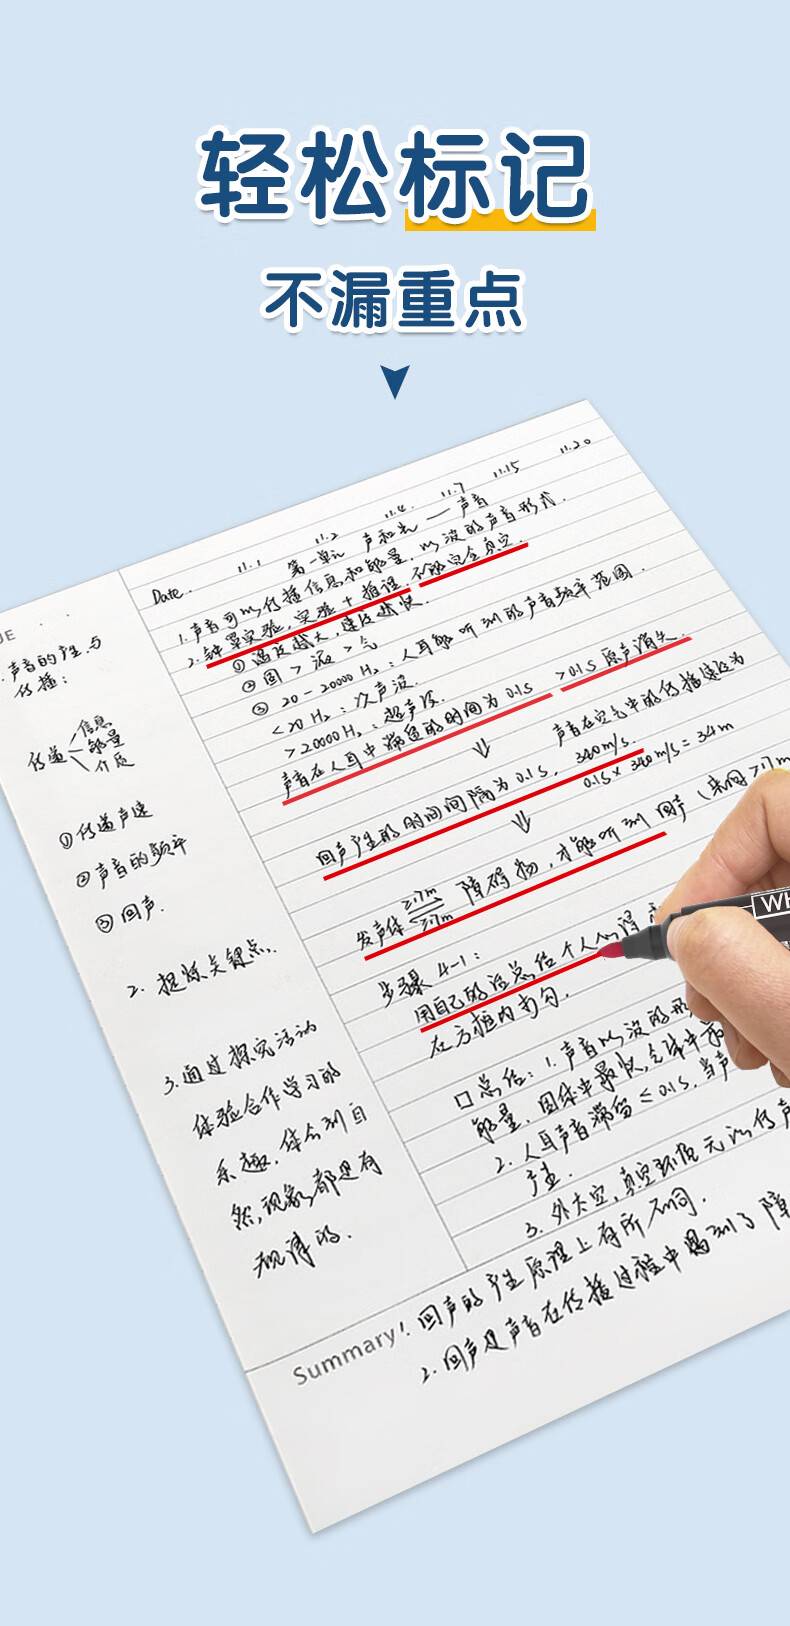 轻松标记
不漏重点
11.1 11.2 11.4. 11.7 11.15 11.20
Date.
第一单元 声和光 — 声音
1. 声音可以传播信息和能量, 以波的声音形式.
2. 钟罩实验, 实验+推理, 不能完全真空.
① 温度越大, 速度越快.
② 固 > 液 > 气
③ 20-20000Hz: 人耳能听到的声音频率范围.
<20Hz: 次声波.
>20000Hz: 超声波.
声音在人耳中滞留的时间为0.1s >0.1s原声消失
⇓
声音在空气中的传播速度为
340m/s.
回声产生的时间间隔为0.1s, 0.1s×340m/s=34m
⇓
发声体 ≥17m ≥17m 障碍物, 才能听到回声 (来回>17m
步骤4-1:
用自己的话总结个人心得
在方框内书写.
口总结: 1. 声音以波的形
能量, 固体中最快, 气体中最
2. 人耳声音滞留≤0.1s, 当声
产生.
3. 外太空, 真空环境无以传声
UE
声音的产生与
传播:
传递 信息 能量 介质
① 传递声速
② 声音的频率
③ 回声.
2. 提炼关键点.
3. 通过探究活动
体验合作学习的
乐趣, 体会到自
然现象都是有
规律的.
Summary! 回声的产生原理上有所不同.
2. 回声是声音在传播过程中遇到了障
WH